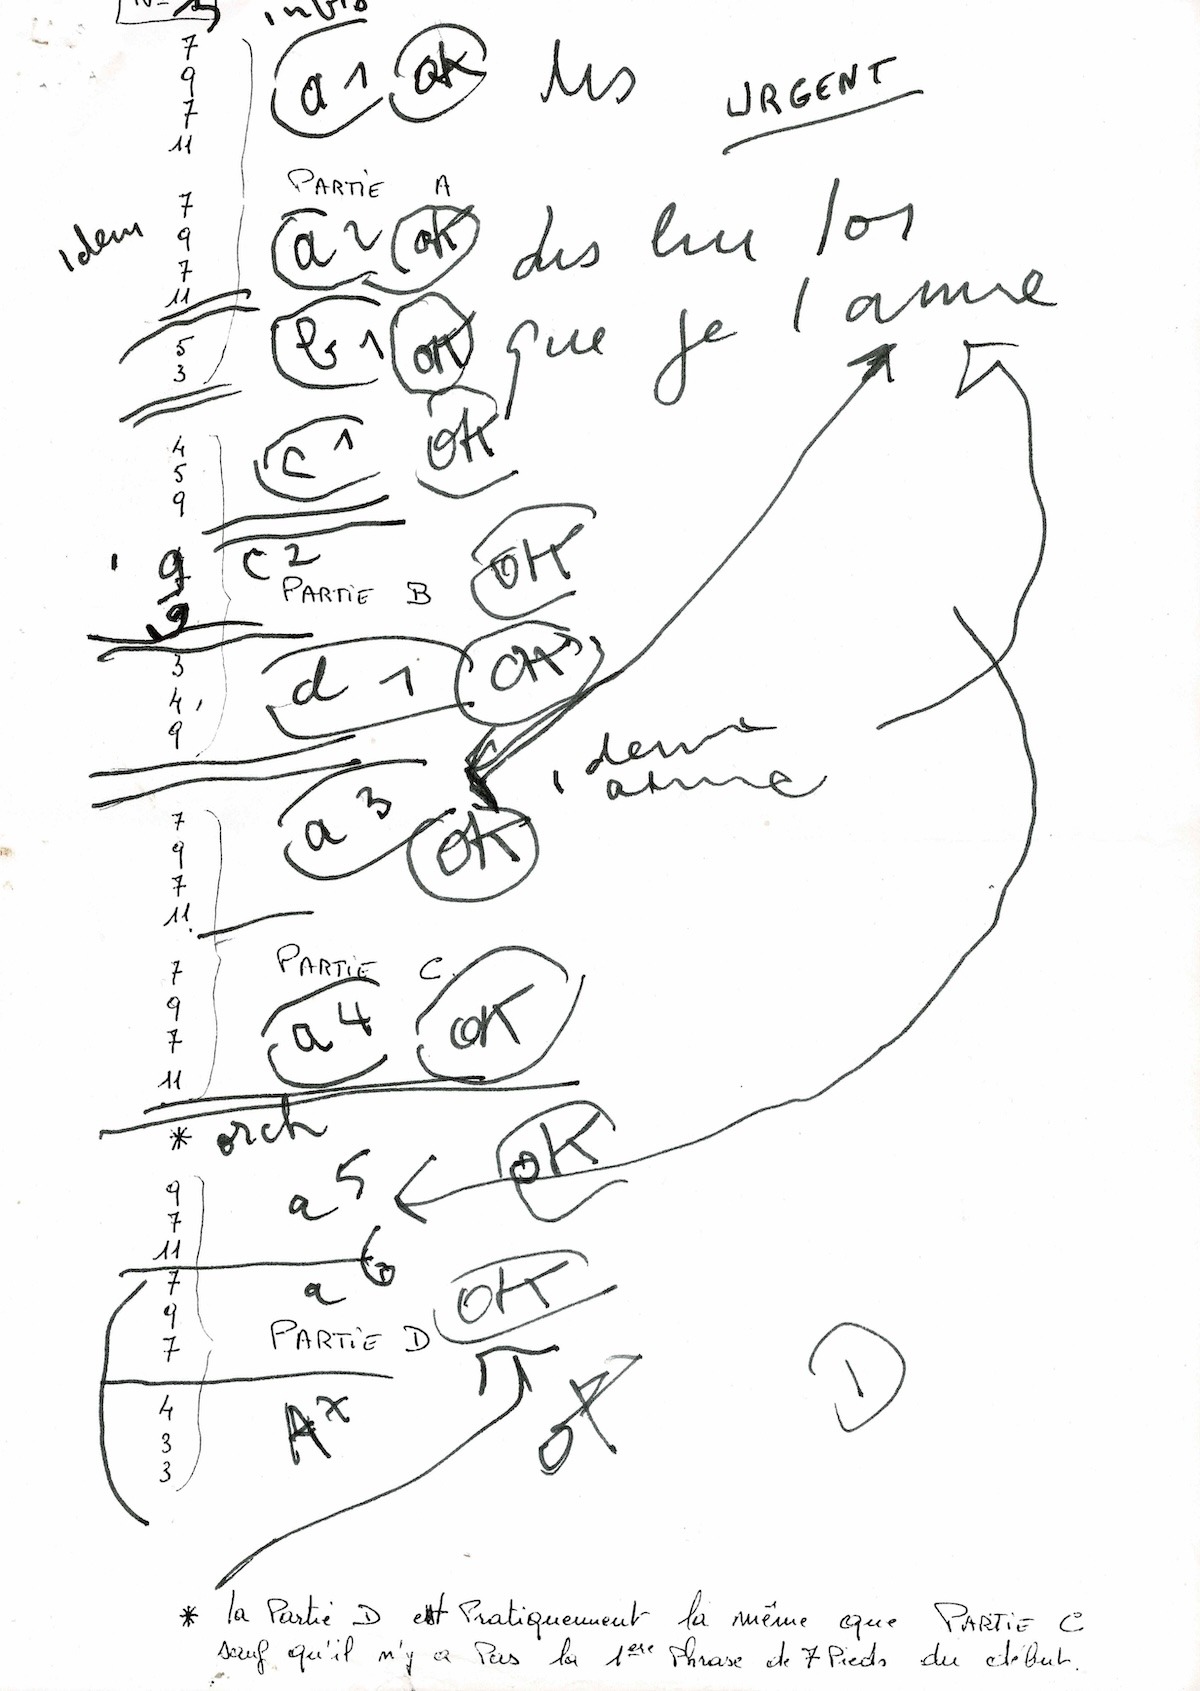 intro
7
9 a1 OK les URGENT
7
11
PARTIE A
7
idem 9 a2 OK
7 des lors
11
5 b1 OK que je l'
3
4 c1 OK
5
9
9 c2 OK
PARTIE B
9
3 d1 OK
4
9
a3 OK idem
7
9
7
11
PARTIE C
7
9 a4 OK
7
11
* orch
a5 OK
9
7
11
7 a6 OK
9
7 PARTIE D
4 A OK D
3
3
* la Partie D est Pratiquement la même que PARTIE C
sauf qu'il n'y a Pas la 1ere Phrase de 7 Pieds du début.